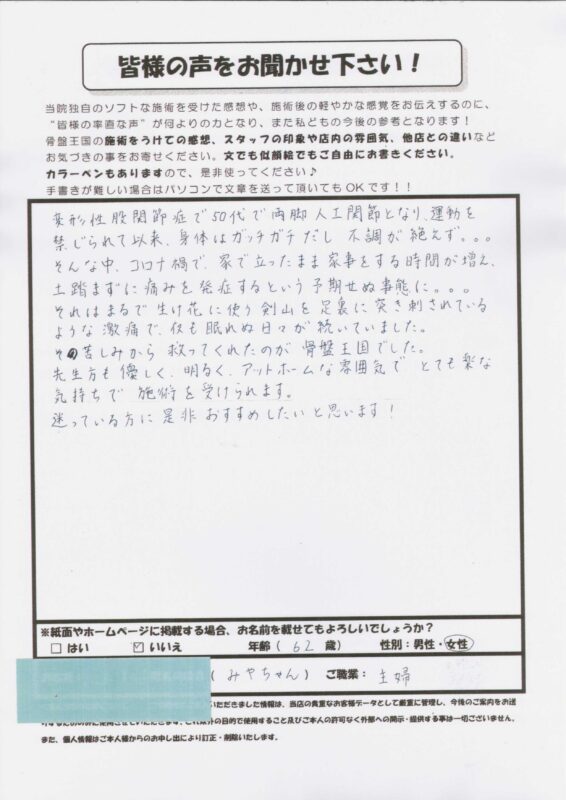 皆様の声をお聞かせ下さい！
当院独自のソフトな施術を受けた感想や、施術後の軽やかな感覚をお伝えするのに、
“皆様の率直な声”が何よりの力となり、また私どもの今後の参考となります！
骨盤王国の施術をうけての感想、スタッフの印象や店内の雰囲気、他店との違いなど
お気づきの事をお寄せください。文でも似顔絵でもご自由にお書きください。
カラーペンもありますので、是非使ってください♪
手書きが難しい場合はパソコンで文章を送って頂いてもOKです！！
変形性股関節症で50代で両脚人工関節となり、運動を
禁じられて以来、身体はガッチガチだし 不調が絶えず。。。
そんな中、コロナ禍で、家で立ったまま家事をする時間が増え、
土踏まずに痛みを発症するという予期せぬ事態に。。。
それはまるで生け花に使う剣山を足裏に突き刺されている
ような激痛で、夜も眠れぬ日々が続いていました。
その苦しみから救ってくれたのが骨盤王国でした。
先生方も優しく、明るく、アットホームな雰囲気でとても楽な
気持ちで施術を受けられます。
迷っている方に是非おすすめしたいと思います！
※紙面やホームページに掲載する場合、お名前を載せてもよろしいでしょうか？
□ はい ☑ いいえ 年齢（ 62 歳） 性別：男性・女性
（ みやちゃん ） ご職業： 主婦
いただきました情報は、当店の貴重なお客様データとして厳重に管理し、今後のご案内をお送
りするためのみに使用させていただきます。これ以外の目的で使用すること及びご本人の許可なく外部への開示・提供する事は一切ございません。
また、個人情報はご本人様からのお申し出により訂正・削除いたします。